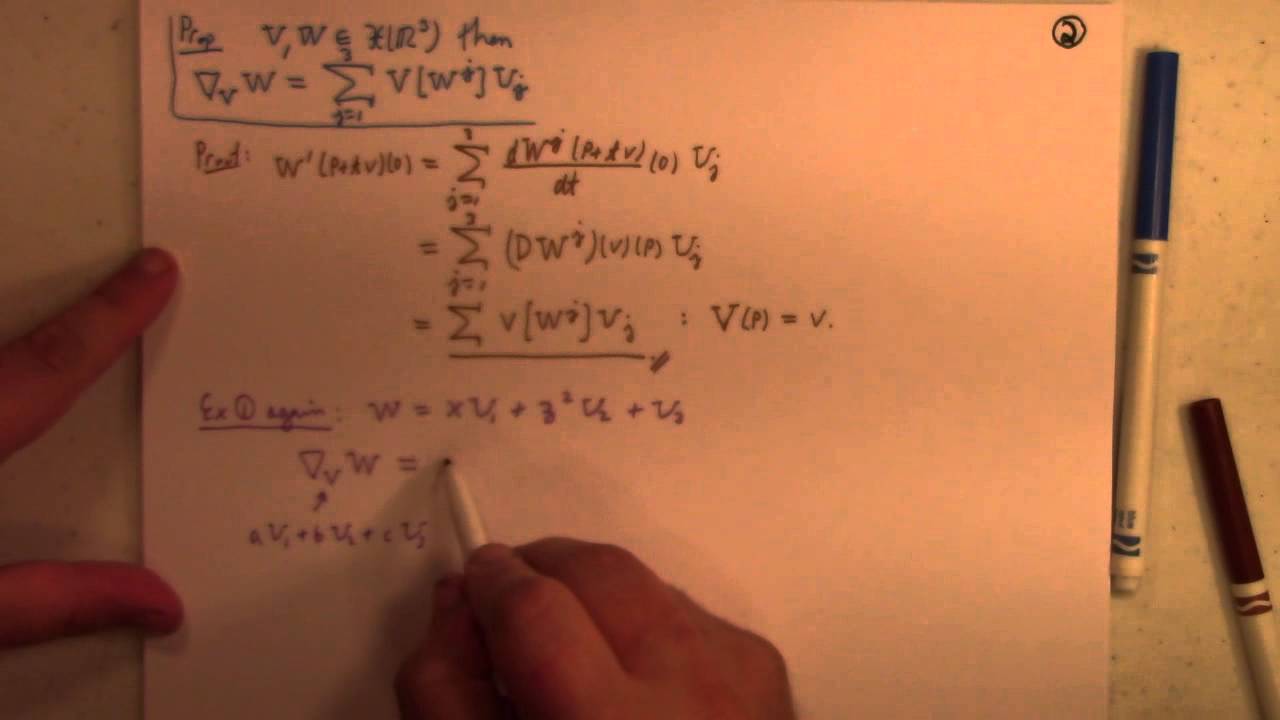 ②
Prop V, W ∈ 𝔛(ℝ³) then
∇_V W = ∑_{j=1}^{3} V[W^j] U_j
Proof: W'(p+tv)(0) = ∑_{j=1}^{3} dW^j(p+tv)/dt (0) U_j
= ∑_{j=1}^{3} (DW^j)(v)(p) U_j
= ∑ v[W^j] U_j : V(p) = v.
Ex ① again: W = xU₁ + z²U₂ + U₃
∇_V W =
aU₁ + bU₂ + cU₃